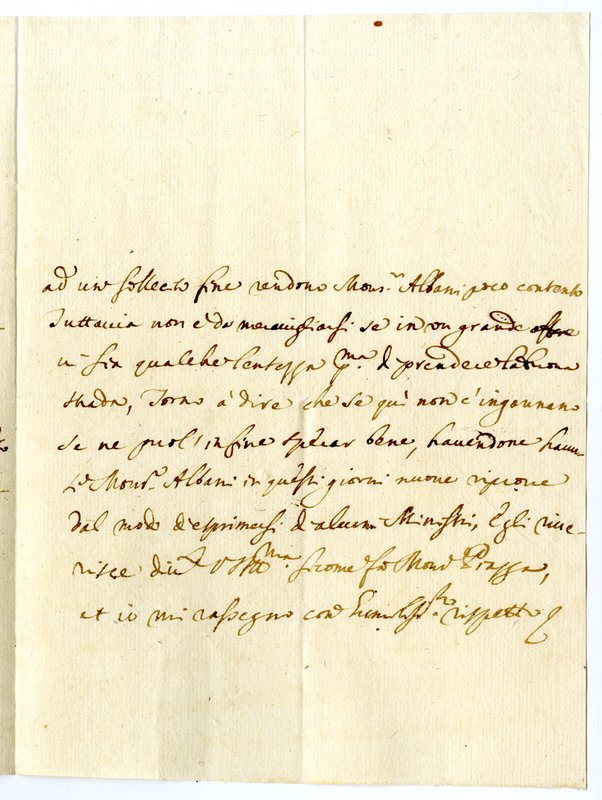 ad un sollecito fine rendono Mons.r Albani poco contento
Tuttavia non è da meravigliarsi se in un grande affare
vi sia qualche lentezza p.ma di prendere la buona
strada, Torno à dire che se quì non c'ingannano
se ne puol' in fine sperar bene, havendone havu-
to Mons.r Albani in questi giorni nuove riprove
dal modo d'esprimersi di alcuni Ministri, Egli rive-
risce V S Ill.ma sicome fà Mons.r Piazza,
et io mi rassegno con humiliss.mo rispetto